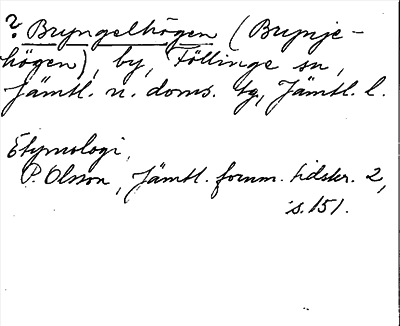 ? Bryngelhögen (Brynje-
högen), by, Föllinge sn,
Jämtl. n. doms. tg, Jämtl. l.
Etymologi,
P. Olsson, Jämtl. fornm. tidskr. 2,
s. 151.